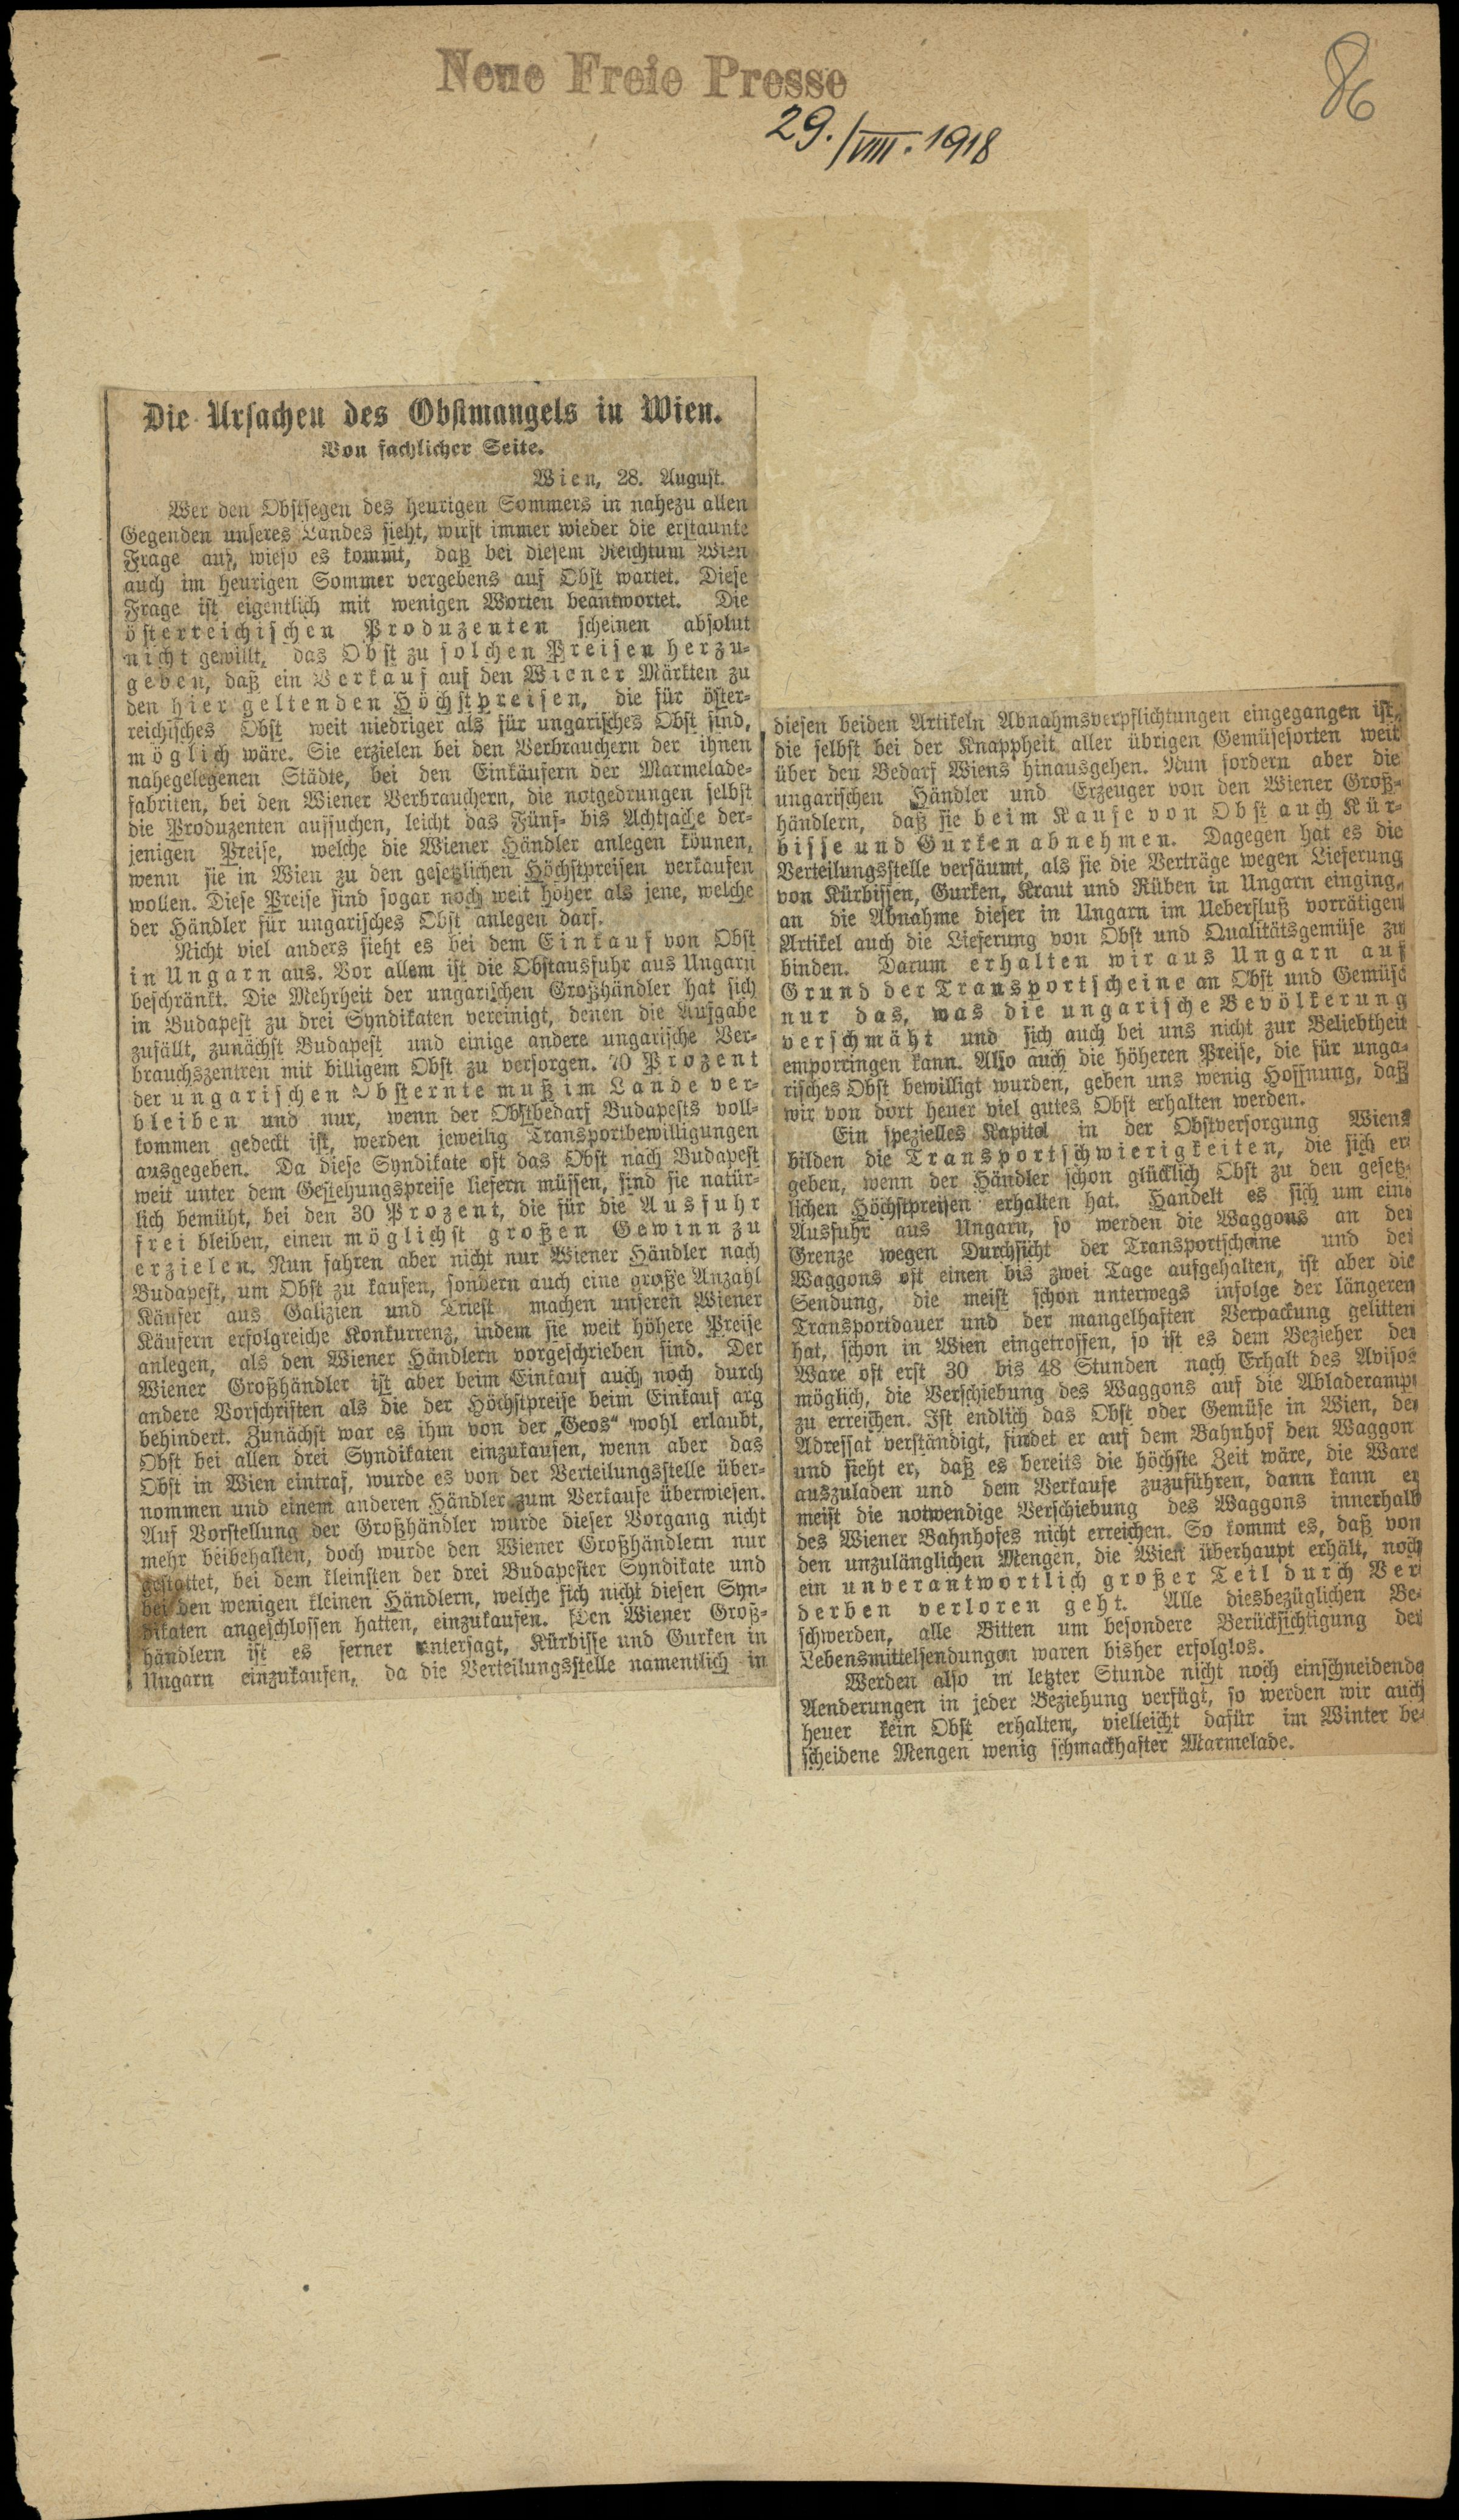 Neue Freie Presse
86
29./VIII. 1918
Die Ursachen des Obstmangels in Wien.
Von fachlicher Seite.
Wien, 28. August.
Wer den Obstsegen des heurigen Sommers in nahezu allen
Gegenden unseres Landes sieht, wirft immer wieder die erstaunte
Frage auf, wieso es kommt, daß bei diesem Reichtum Wien
auch im heurigen Sommer vergebens auf Obst wartet. Diese
Frage ist eigentlich mit wenigen Worten beantwortet. Die
österreichischen Produzenten scheinen absolut
nicht gewillt, das Obst zu solchen Preisen herzu-
geben, daß ein Verkauf auf den Wiener Märkten zu
den hier geltenden Höchstpreisen, die für öster-
reichisches Obst weit niedriger als für ungarisches Obst sind,
möglich wäre. Sie erzielen bei den Verbrauchern der ihnen
nahegelegenen Städte, bei den Einkäufern der Marmelade-
fabriken, bei den Wiener Verbrauchern, die notgedrungen selbst
die Produzenten aufsuchen, leicht das Fünf- bis Achtfache der-
jenigen Preise, welche die Wiener Händler anlegen können,
wenn sie in Wien zu den gesetzlichen Höchstpreisen verkaufen
wollen. Diese Preise sind sogar noch weit höher als jene, welche
der Händler für ungarisches Obst anlegen darf.
Nicht viel anders sieht es bei dem Einkauf von Obst
in Ungarn aus. Vor allem ist die Obstausfuhr aus Ungarn
beschränkt. Die Mehrheit der ungarischen Großhändler hat sich
in Budapest zu drei Syndikaten vereinigt, denen die Aufgabe
zufällt, zunächst Budapest und einige andere ungarische Ver-
brauchszentren mit billigem Obst zu versorgen. 70 Prozent
der ungarischen Obsternte muß im Lande ver-
bleiben und nur, wenn der Obstbedarf Budapests voll-
kommen gedeckt ist, werden jeweilig Transportbewilligungen
ausgegeben. Da diese Syndikate oft das Obst nach Budapest
weit unter dem Gestehungspreise liefern müssen, sind sie natür-
lich bemüht, bei den 30 Prozent, die für die Ausfuhr
frei bleiben, einen möglichst großen Gewinn zu
erzielen. Nun fahren aber nicht nur Wiener Händler nach
Budapest, um Obst zu kaufen, sondern auch eine große Anzahl
Käufer aus Galizien und Triest machen unseren Wiener
Käufern erfolgreiche Konkurrenz, indem sie weit höhere Preise
anlegen, als den Wiener Händlern vorgeschrieben sind. Der
Wiener Großhändler ist aber beim Einkauf auch noch durch
andere Vorschriften als die der Höchstpreise beim Einkauf arg
behindert. Zunächst war es ihm von der „Geos“ wohl erlaubt,
Obst bei allen drei Syndikaten einzukaufen, wenn aber das
Obst in Wien eintraf, wurde es von der Verteilungsstelle über-
nommen und einem anderen Händler zum Verkaufe überwiesen.
Auf Vorstellung der Großhändler wurde dieser Vorgang nicht
mehr beibehalten, doch wurde den Wiener Großhändlern nur
gestattet, bei dem kleinsten der drei Budapester Syndikate und
bei den wenigen kleinen Händlern, welche sich nicht diesen Syn-
dikaten angeschlossen hatten, einzukaufen. Den Wiener Groß-
händlern ist es ferner untersagt, Kürbisse und Gurken in
Ungarn einzukaufen, da die Verteilungsstelle namentlich in
diesen beiden Artikeln Abnahmsverpflichtungen eingegangen ist,
die selbst bei der Knappheit aller übrigen Gemüsesorten weit
über den Bedarf Wiens hinausgehen. Nun fordern aber die
ungarischen Händler und Erzeuger von den Wiener Groß-
händlern, daß sie beim Kaufe von Obst auch Kür-
bisse und Gurken abnehmen. Dagegen hat es die
Verteilungsstelle versäumt, als sie die Verträge wegen Lieferung
von Kürbissen, Gurken, Kraut und Rüben in Ungarn einging,
an die Abnahme dieser in Ungarn im Ueberfluß vorrätigen
Artikel auch die Lieferung von Obst und Qualitätsgemüse zu
binden. Darum erhalten wir aus Ungarn auf
Grund der Transportscheine an Obst und Gemüse
nur das, was die ungarische Bevölkerung
verschmäht und sich auch bei uns nicht zur Beliebtheit
emporringen kann. Also auch die höheren Preise, die für unga-
risches Obst bewilligt wurden, geben uns wenig Hoffnung, daß
wir von dort heuer viel gutes Obst erhalten werden.
Ein spezielles Kapitel in der Obstversorgung Wiens
bilden die Transportschwierigkeiten, die sich er
geben, wenn der Händler schon glücklich Obst zu den gesetz-
lichen Höchstpreisen erhalten hat. Handelt es sich um eine
Ausfuhr aus Ungarn, so werden die Waggons an der
Grenze wegen Durchsicht der Transportscheine und der
Waggons oft einen bis zwei Tage aufgehalten, ist aber die
Sendung, die meist schon unterwegs infolge der längeren
Transportdauer und der mangelhaften Verpackung gelitten
hat, schon in Wien eingetroffen, so ist es dem Bezieher der
Ware oft erst 30 bis 48 Stunden nach Erhalt des Avisos
möglich, die Verschiebung des Waggons auf die Abladerampe
zu erreichen. Ist endlich das Obst oder Gemüse in Wien, der
Adressat verständigt, findet er auf dem Bahnhof den Waggon
und sieht er, daß es bereits die höchste Zeit wäre, die Ware
auszuladen und dem Verkaufe zuzuführen, dann kann er
meist die notwendige Verschiebung des Waggons innerhalb
des Wiener Bahnhofes nicht erreichen. So kommt es, daß von
den unzulänglichen Mengen, die Wien überhaupt erhält, noch
ein unverantwortlich großer Teil durch Ver
derben verloren geht. Alle diesbezüglichen Be-
schwerden, alle Bitten um besondere Berücksichtigung der
Lebensmittelsendungen waren bisher erfolglos.
Werden also in letzter Stunde nicht noch einschneidende
Aenderungen in jeder Beziehung verfügt, so werden wir auch
heuer kein Obst erhalten, vielleicht dafür im Winter be-
scheidene Mengen wenig schmackhafter Marmelade.